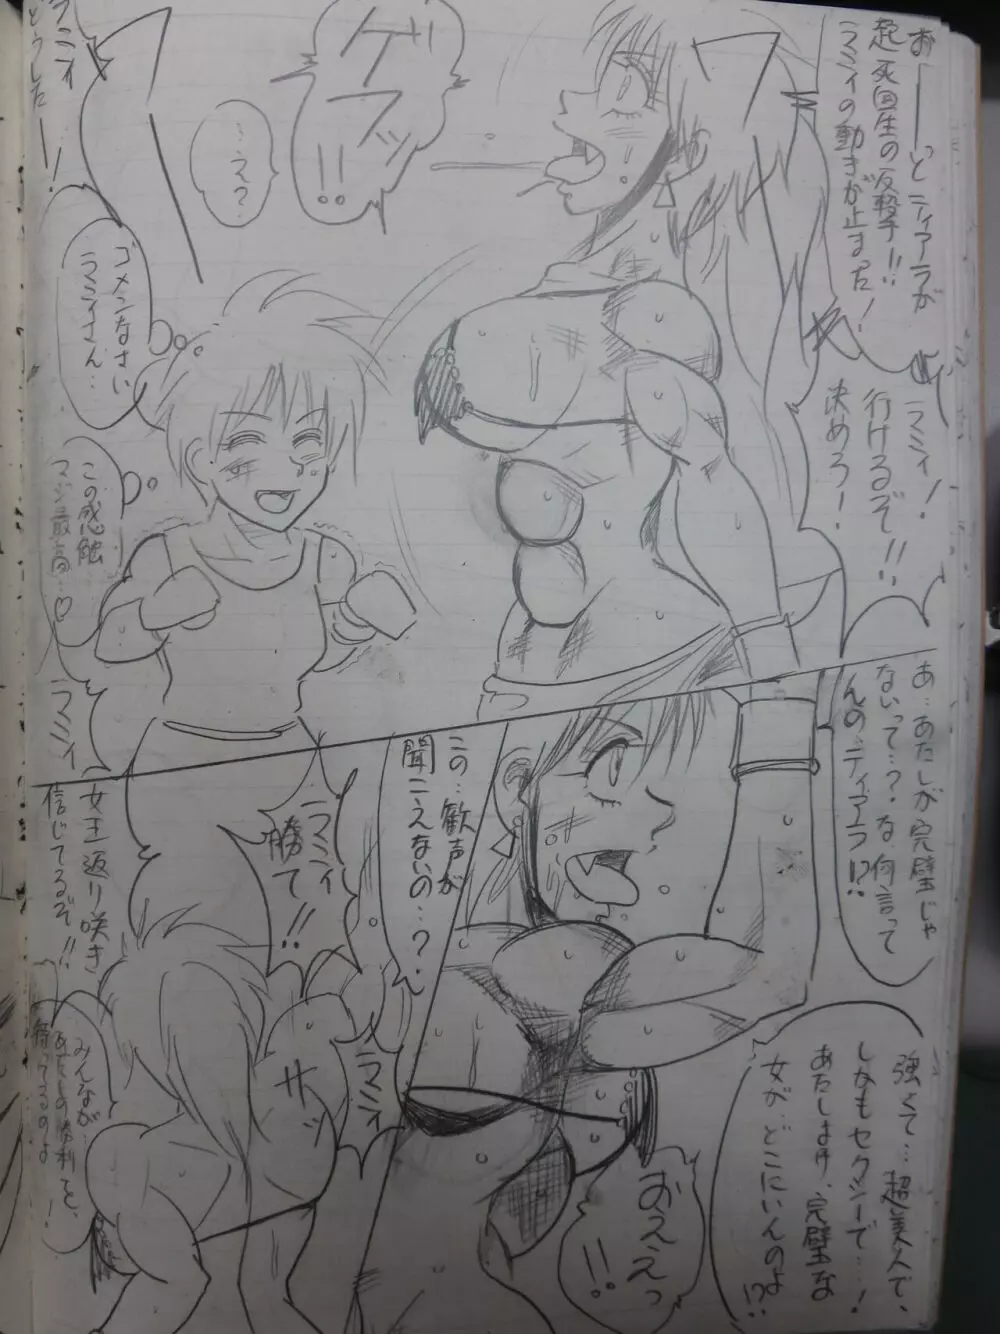 おーーっとティアラが
起死回生の反撃!!
ラミィの動きが止まった!
ラミィ!
行けるぞ!!
決めろー!
ゲフッ!!
…え?
ラミィ
どうしたー!
ゴメンなさい
ラミィさん…
この感触
マジ最高…♡
ラミィ
あ…あたしが完璧じゃ
ないって…?な何言って
んの、ティアラ!?
この…歓声が
聞こえないの…?
ラミィ
勝て!!
女王返り咲き
信じてるぞ!!
強くて…超美人で、
しかもセクシーで…!
あたしほど、完璧な
女が、どこにいんのよ
!?
おええっ!!
ラミィ
サッ
みんなが…
あたしの勝利を、
待ってるのよー!